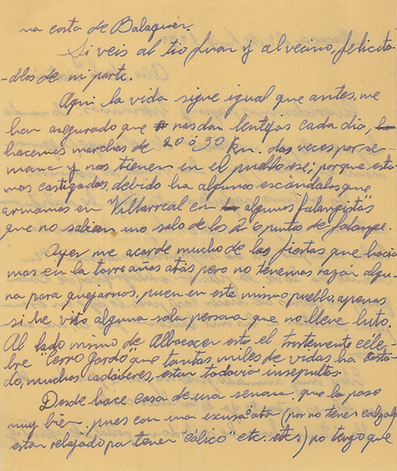 na costa de Balaguer.
Si veis al tio Juan y al vecino, felicita-
dlos de mi parte.
Aqui la vida sigue igual que antes, me
han asegurado que nos dan lentejas cada dia,
hacemos marchas de 20 o 30 km. dos veces por se-
mana y nos tienen en el pueblo ese; porque esta-
mos castigados, debido ha algunos escándalos que
armamos en Villarreal en algunos "falangistas"
que no sabian uno solo de los 2 puntos de falange.
Ayer me acorde mucho de las fiestas que hacia-
mos en la torre años atrás pero no tenemos razón algu-
na para quejarnos, pues en este mismo pueblo, apenas
si he visto alguna sola persona que no lleve luto.
Al lado mismo de Albocacer esta el tristemente céle-
bre "cerro gordo" que tantas, miles de vidas ha costa-
do, muchos cadáveres, estan todavia insepultos.
Desde hace cosa de una semana, que la paso
muy bien, pues con una excusa ata (por no tener calzado
estar rebajado por tener "cólico" etc. etc) no tengo que